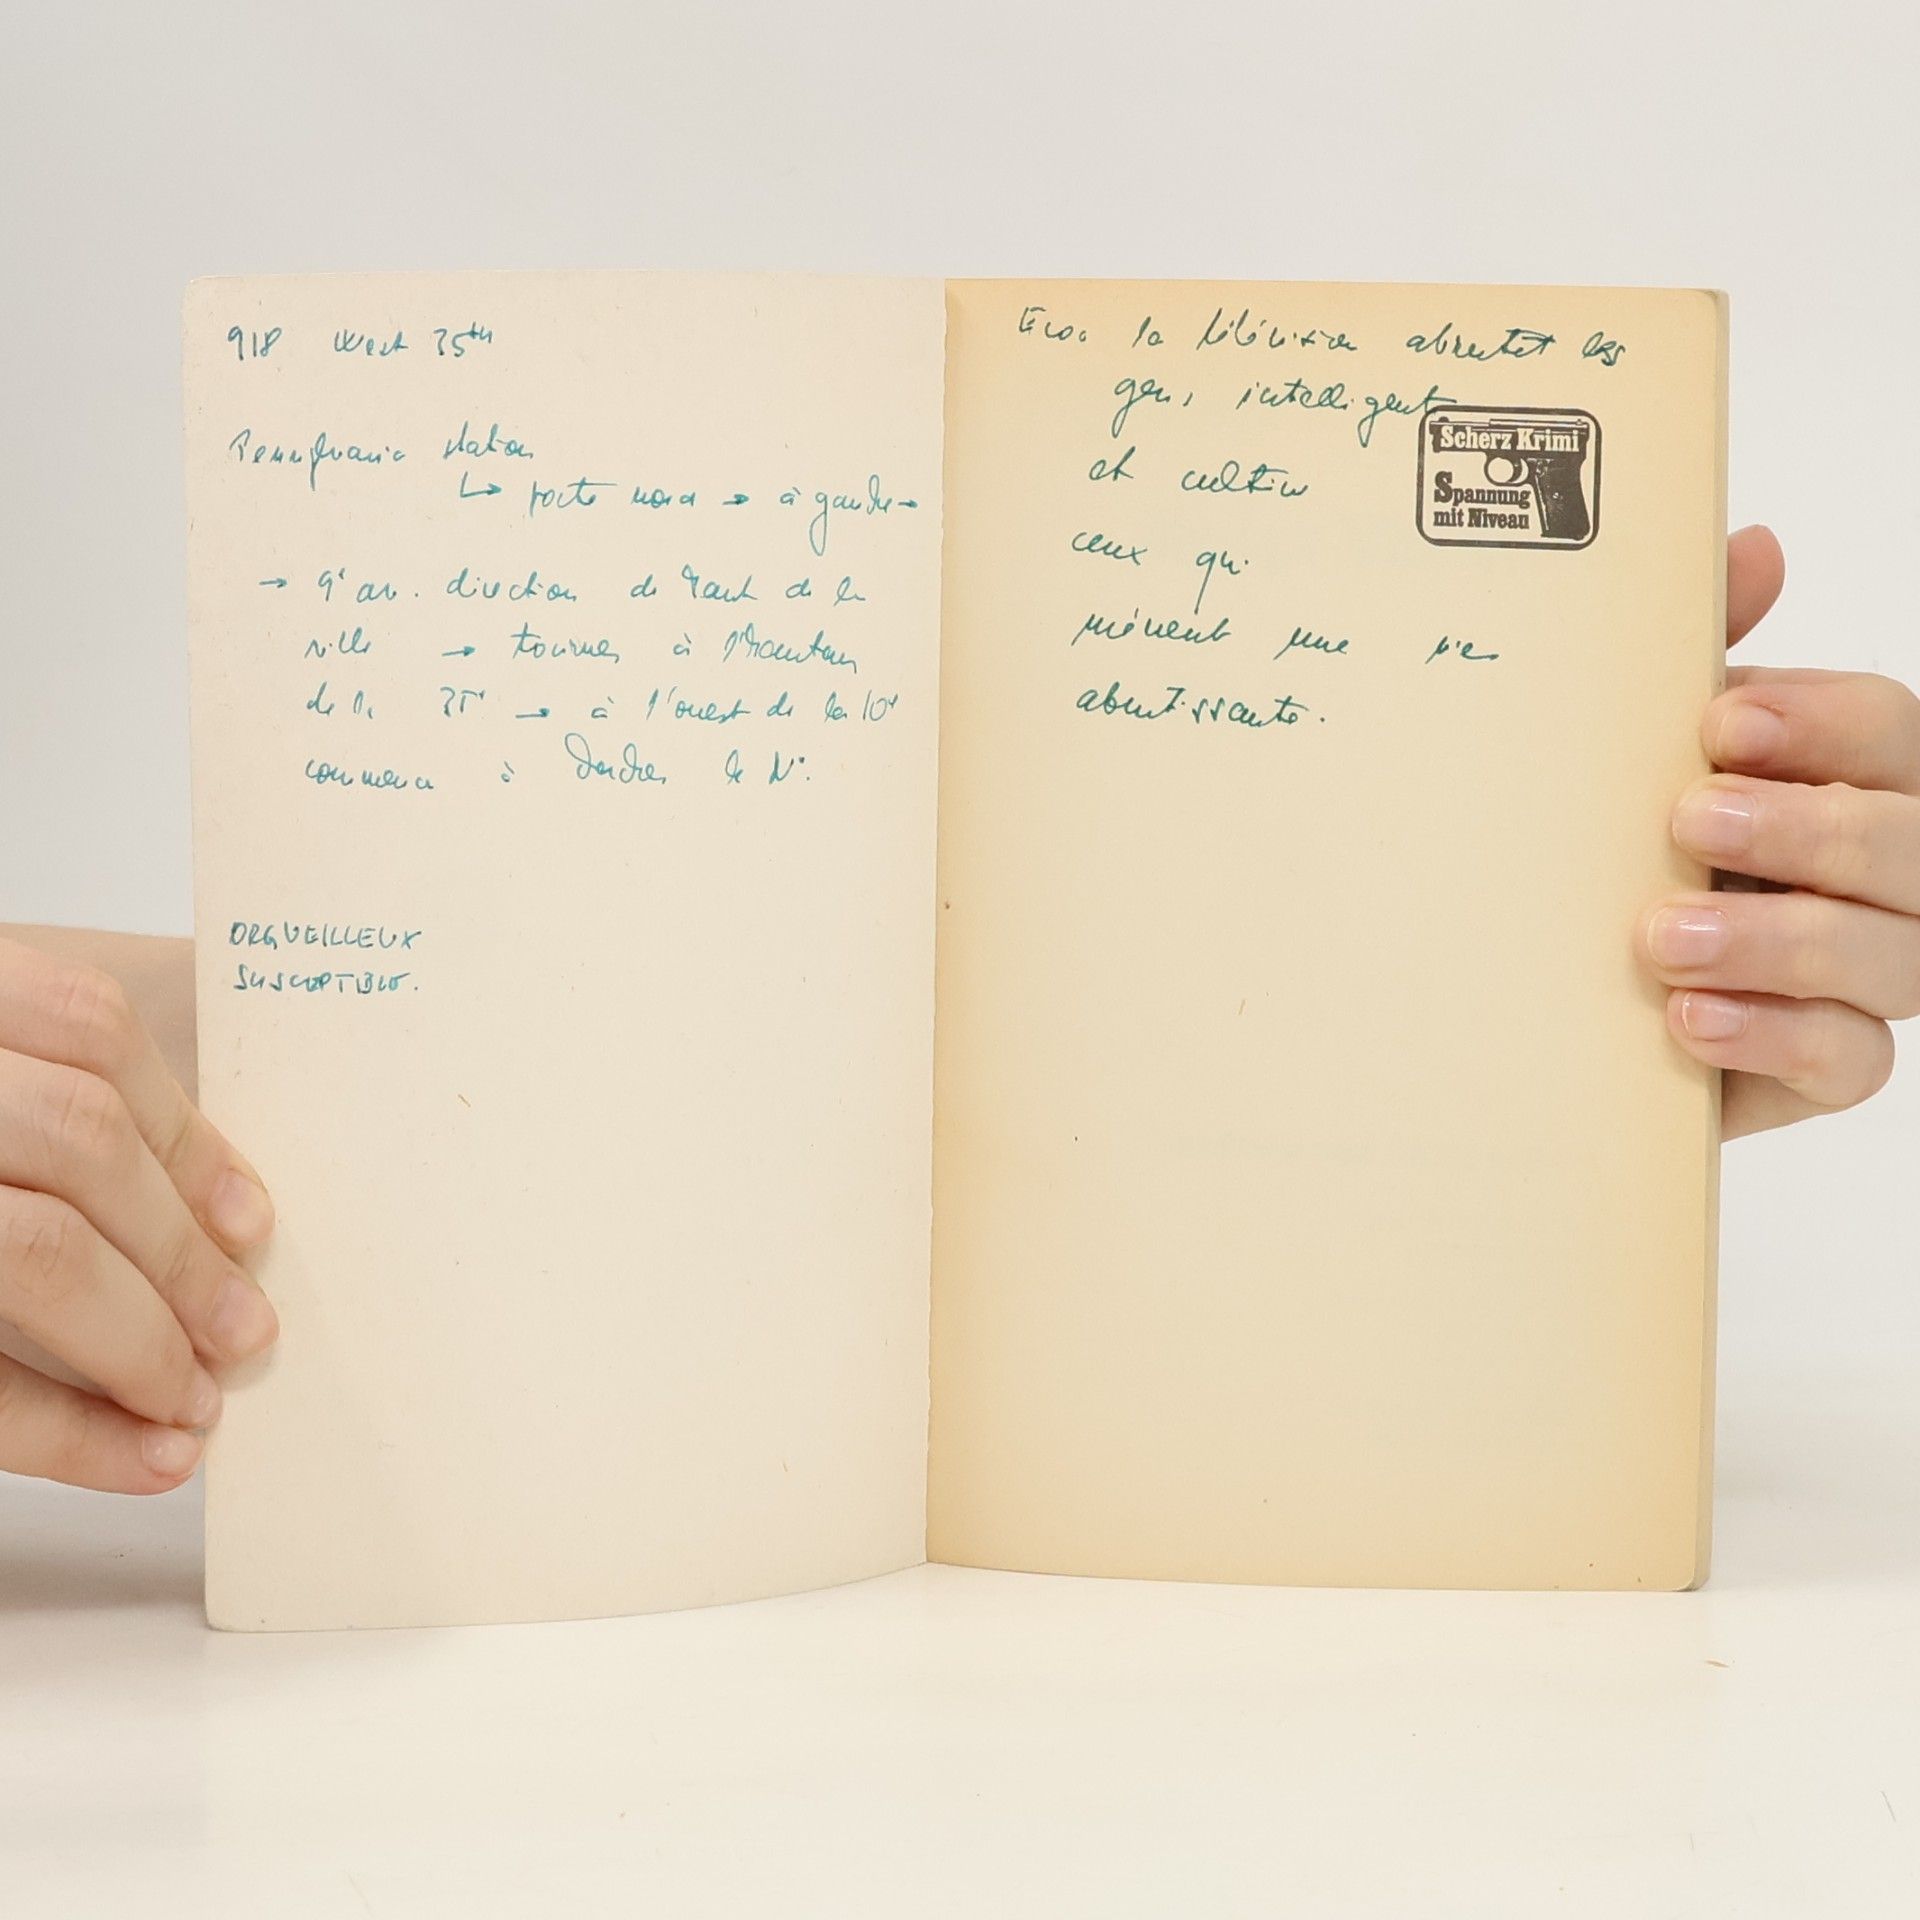 918 West 35th
Pennsylvania station
↳ porte nord → à gauche →
→ 9e av. direction de haut de la
ville → tourner à l'hauteur
de la 35e → à l'ouest de la 10e
commence à chercher le N°.
ORGUEILLEUX
SUSCEPTIBLE.
la télévision abrutit les
gens intelligents
et cultive
ceux qui
mènent une vie
abrutissante.
Scherz Krimi
Spannung
mit Niveau